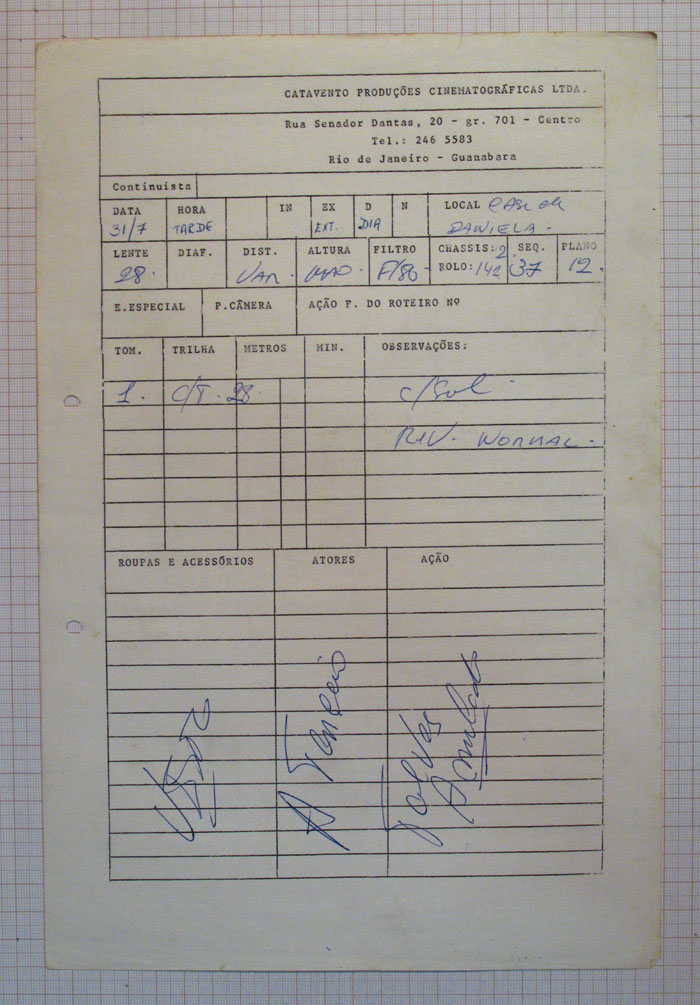 CATAVENTO PRODUÇÕES CINEMATOGRÁFICAS LTDA.
Rua Senador Dantas, 20 - gr. 701 - Centro
Tel.: 246 5583
Rio de Janeiro - Guanabara
Continuista
DATA HORA IN EX D N LOCAL CASA DE
31/7 TARDE EXT. DIA DANIELA.
LENTE DIAF. DIST. ALTURA FILTRO CHASSIS: 2 SEQ. PLANO
28. VAR. F/80 ROLO: 142 37 12.
E.ESPECIAL P.CÂMERA AÇÃO F. DO ROTEIRO Nº
TOM. TRILHA METROS MIN. OBSERVAÇÕES:
1. C/T. 28. c/Sol.
NORMAL.
ROUPAS E ACESSÓRIOS ATORES AÇÃO